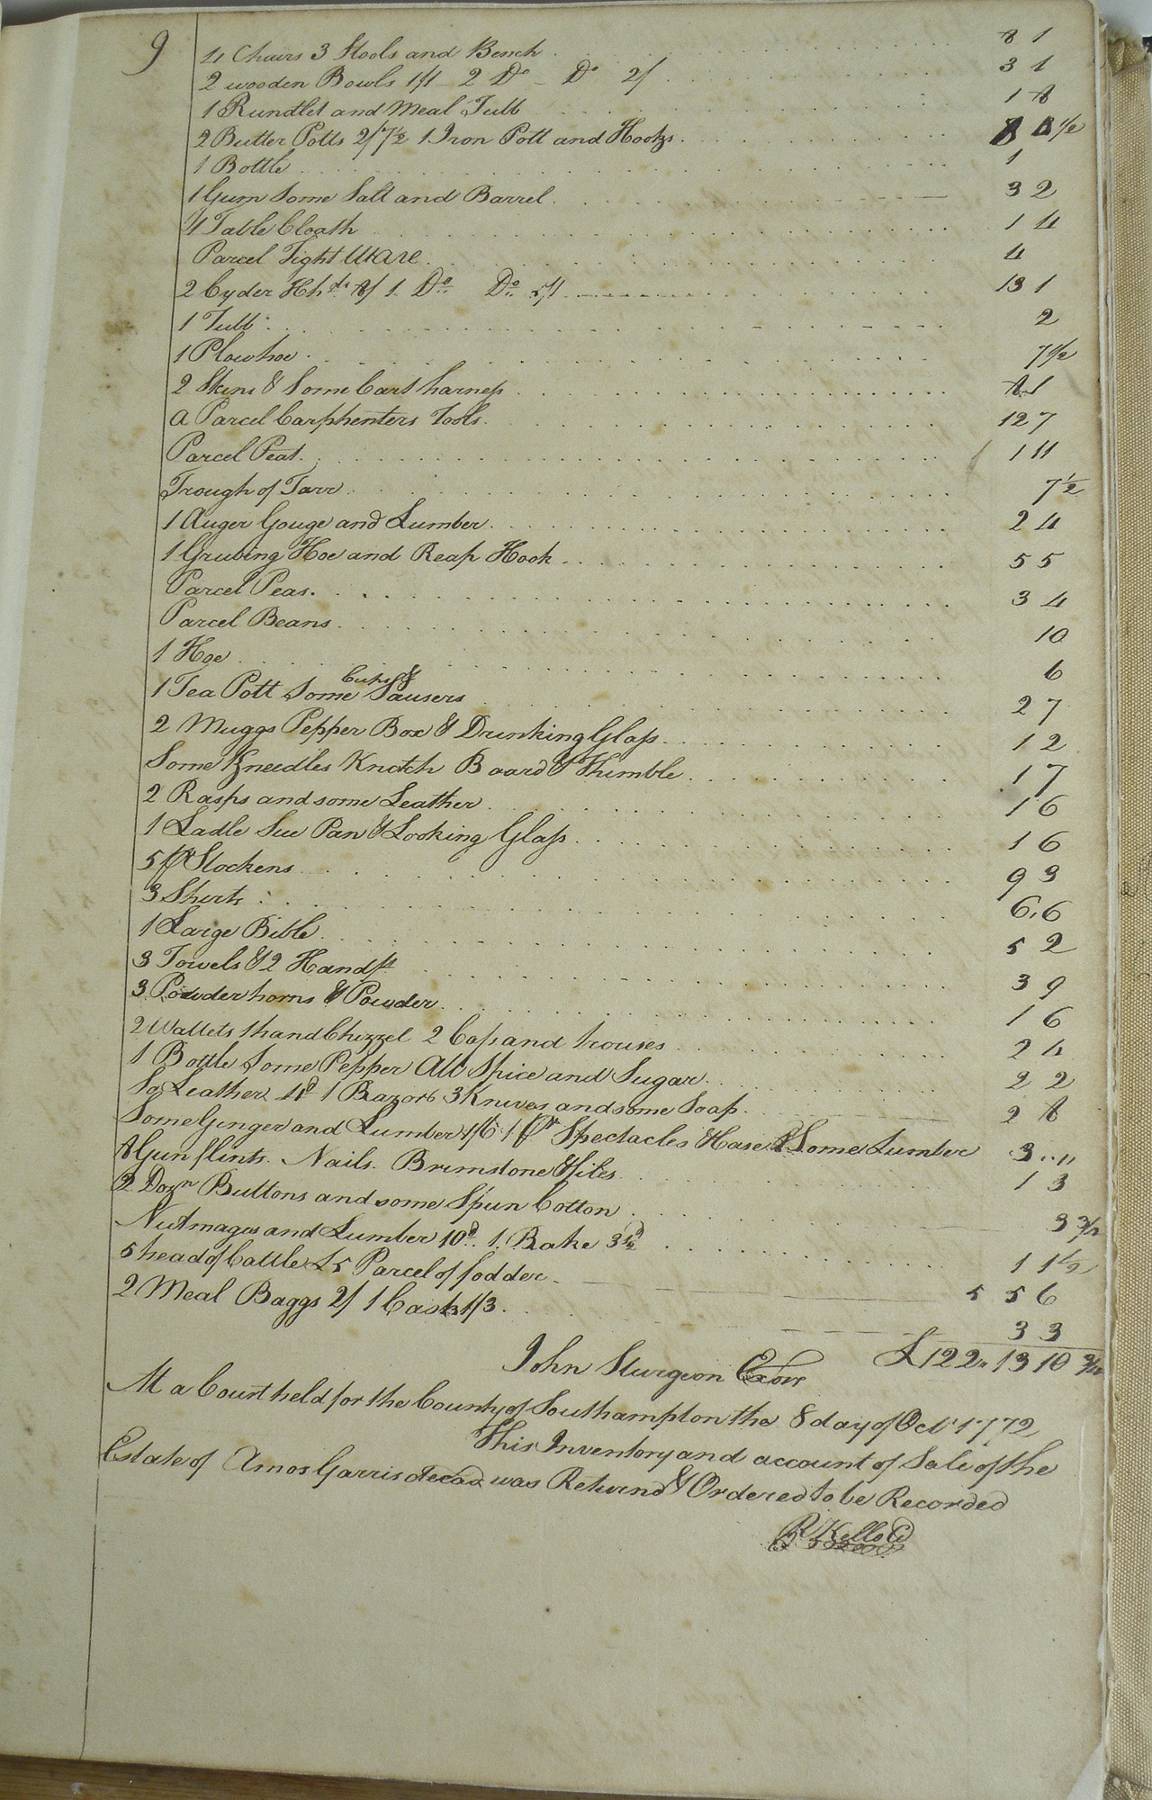 9
4 Chairs 3 Stools and Bench 8 1
2 wooden Bowls 1/1 2 Do Do 2/ 3 1
1 Rundlet and Meal Tubb 1 8
2 Butter Potts 2/7½ 1 Iron Pott and Hooks
1 Bottle 1
1 Gum Some Salt and Barrel 3 2
1 Table Cloath 1 4
Parcel Tight Ware 4
2 Cyder Hhds 8/ 1 Do Do 5/1 13 1
1 Tubb 2
1 Plowhoe 7½
2 Skins & Some Cart harness 8 1
a Parcel Carphenters Tools 12 7
Parcel Peat 1 11
Trough of Tarr 7½
1 Auger Gouge and Lumber 2 4
1 Grubing Hoe and Reap Hook 5 5
Parcel Peas 3 4
Parcel Beans 10
1 Hoe 6
1 Tea Pott Some Cups & Sausers 2 7
2 Muggs Pepper Box & Drinking Glass 1 2
Some Kneedles Knotch Board & Thimble 1 7
2 Rasps and some Leather 1 6
1 Ladle Sue Pan & Looking Glass 1 6
5 pr Stockens 9 3
3 Sherts 6 6
1 Large Bible 5 2
3 Towels & 2 Handft 3 9
3 Powder horns & Powder 1 6
2 Wallets 1 hand Chizzel 2 Cap and trouses 2 4
1 Bottle Some Pepper All Spice and Sugar 2 2
So Leather 4d 1 Razorb 3 Knives and some Soap 2 8
Some Ginger and Lumber 1/6 1 pr Spectacles Hase & Some Lumber 3 11
8 Gun flints Nails Brimstone & files 1 3
2 Dozn Buttons and some Spun Cotton 3 ¾
Nutmages and Lumber 10d 1 Rake 3½d 1 1½
5 head of Cattle £5 Parcel of fodder 5 5 6
2 Meal Baggs 2/ 1 Cask 1/3 3 3
John Sturgeon Exor £122 13 10 ¾
At a Court held for the County of Southampton the 8 day of Oct 1772
This Inventory and account of Sale of the
Estate of Amos Garris decad was Returnd & Ordered to be Recorded
R Kello